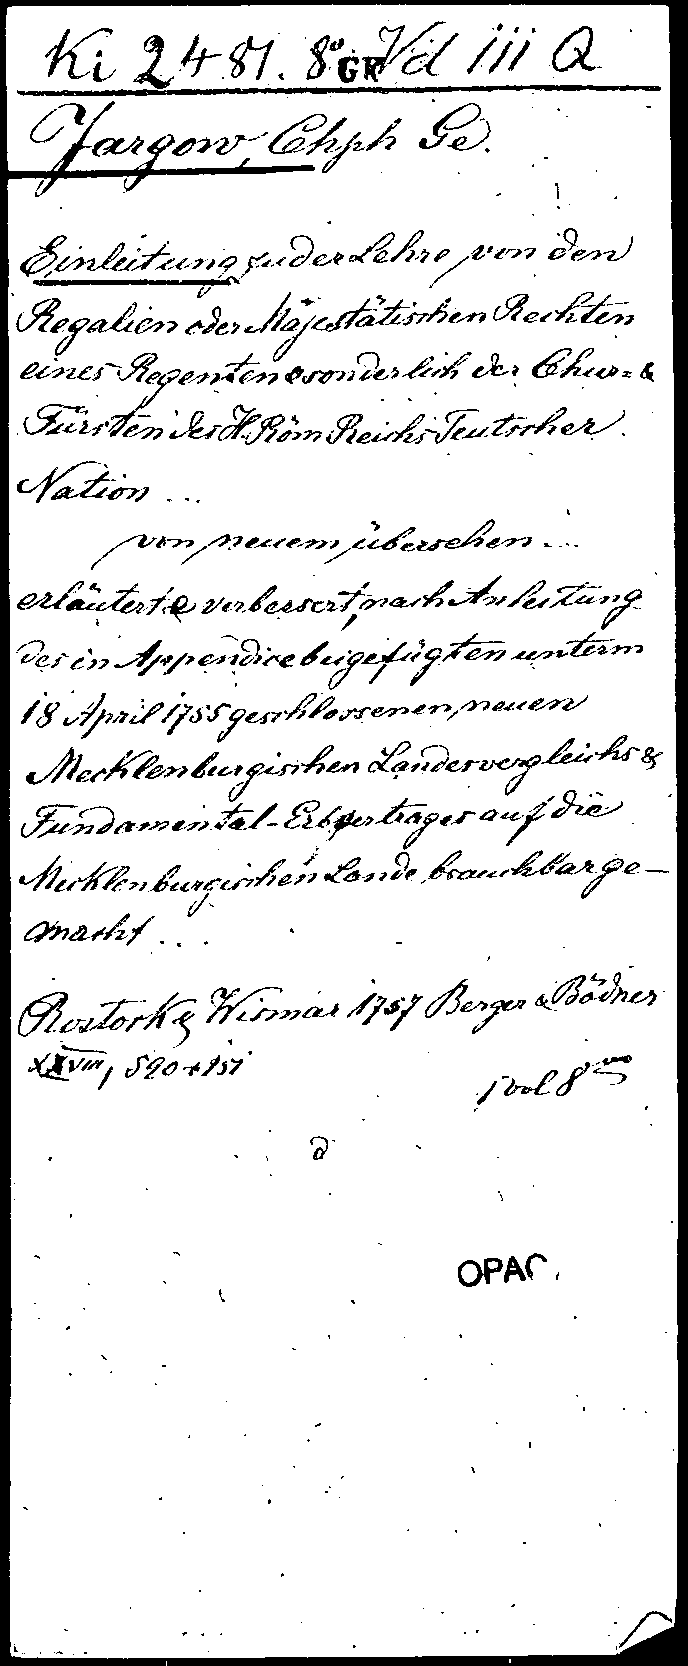 Ki 2481. 8° GR Vd iii Q
Jargow, Chph Ge.
Einleitung zu der Lehre von den
Regalien oder Majestätischen Rechten
eines Regenten esonderlich der Chur= &
Fürsten des H. Röm Reichs Teutscher
Nation ...
von neuem übersehen ...
erläutert & verbessert, nach Anleitung
des in Appendice beigefügten unterm
18 April 1755 geschlossenen, neuen
Mecklenburgischen Landesvergleichs &
Fundamental-Erbvertrages auf die
Mecklenburgischen Lande brauchbar ge-
macht ...
Rostock & Wismar 1757 Berger & Bödner
XXVIII, 590 + 151
1 vol 8vo
OPAC